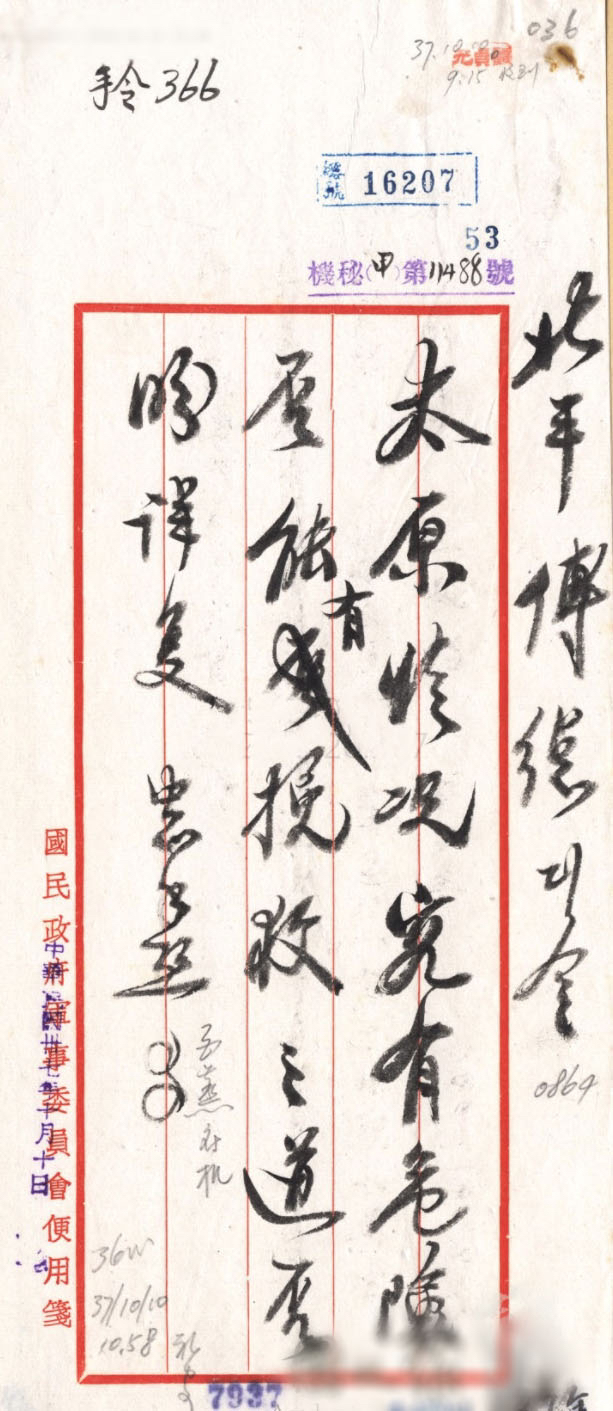 036
37.10.10
9.15 收到
手令366
總號 16207
53
機秘(甲)第11488號
北平傅總司令
0864
太原情況究有危險
否能有挽救之道否
盼詳复 中正
國民政府軍事委員會便用箋
中華民國卅七年十月十日
37/10/10
10.58
7937